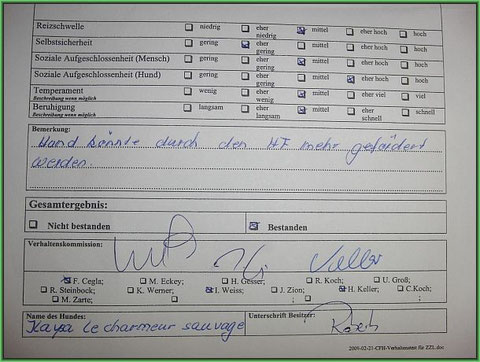 Reizschwelle ☐ niedrig ☐ eher niedrig ☒ mittel ☐ eher hoch ☐ hoch
Selbstsicherheit ☐ gering ☒ eher gering ☐ mittel ☐ eher hoch ☐ hoch
Soziale Aufgeschlossenheit (Mensch) ☐ gering ☐ eher gering ☒ mittel ☐ eher hoch ☐ hoch
Soziale Aufgeschlossenheit (Hund) ☐ gering ☐ eher gering ☐ mittel ☒ eher hoch ☐ hoch
Temperament ☐ wenig ☐ eher wenig ☒ mittel ☐ eher viel ☐ viel
Beschreibung wenn möglich
Beruhigung ☐ langsam ☐ eher langsam ☒ mittel ☐ eher schnell ☐ schnell
Beschreibung wenn möglich
Bemerkung:
Hund könnte durch den HF mehr gefördert
werden.
Gesamtergebnis:
☐ Nicht bestanden ☒ Bestanden
Verhaltenskommission:
Keller
☒ F. Cegla; ☐ M. Eckey; ☐ H. Gesser; ☐ R. Koch; ☐ U. Groß;
☐ R. Steinbock; ☐ K. Werner; ☒ I. Weiss; ☐ J. Zion; ☒ H. Keller; ☐ C.Koch;
☐ M. Zarte; ☐ ☐ ; ☐
Name des Hundes: Unterschrift Besitzer:
Kaya le charmeur sauvage
2009-02-21-CFH-Verhaltenstest für ZZL.doc